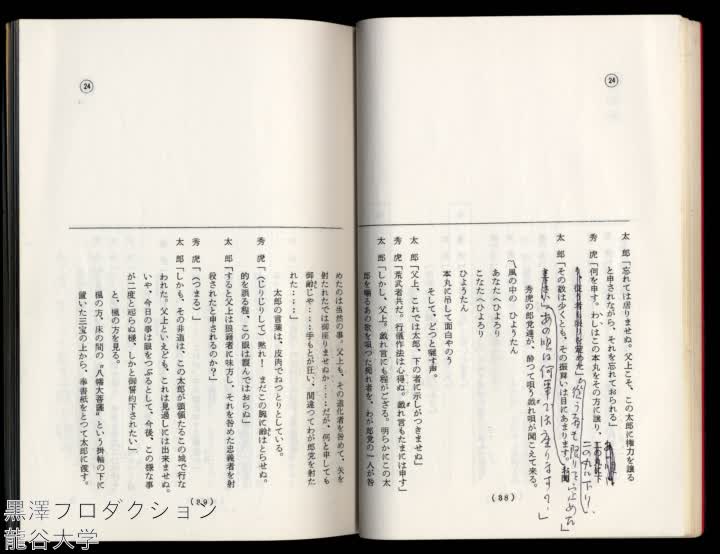 24
太郎「忘れては居りませぬ。父上こそ、この太郎に権力を譲る
と申されながら、それを忘れておられる」
秀虎「何を申す。わしはこの本丸をその方に譲り、
二の丸に下り、
従う者も限りを定めた」
太郎「その数は少くとも、その振舞いは目にあまります。
あの唄は何事で座りますか?」
秀虎の郎党達が、酔つて唄う戯れ唄が聞こえて来る。
〽風の中の ひょうたん
あなたへひょろり
こなたへひょろり
ひょうたん
本丸に吊して面白やのう
そして、どつと囃す声。
太郎「父上、これでは太郎、下の者に示しがつきませぬ」
秀虎「荒武者共だ。行儀作法は心得ぬ。戯れ言もたまには申す」
太郎「しかし、父上。戯れ言にも程がござる。明らかにこの太
郎を嘲るあの歌を唄つた痴れ者を、わが郎党の一人が咎
(88)
24
めたのは当然の事。父上も、その道化者を咎めて、矢を
射たれたでは御座りませぬか‥‥だが、何と申しても
御齢じや‥‥手もとが狂い、間違つてわが郎党を射た
れた‥‥」
太郎の言葉は、皮肉でねつとりとしている。
秀虎「(じりじりして)黙れ! まだこの腕に齢はとらせぬ。
的を誤る程、この眼は霞んではおらぬ」
太郎「すると父上は狼藉者に味方し、それを咎めた忠義者を射
殺されたと申されるのか?」
秀虎「(つまる)」
太郎「しかも、その非道は、この太郎が頭領たるこの城で行な
われた。父上といえども、これは見過しには出来ませぬ。
いや、今日の事は眼をつぶるとして、今後、この様な事
が二度と起らぬ様、しかと御誓約下されたい」
と、楓の方を見る。
楓の方、床の間の〝八幡大菩薩〟という掛軸の下に
置いた三宝の上から、奉書紙をとつて太郎に渡す。
(89)
黒澤プロダクション
龍谷大学